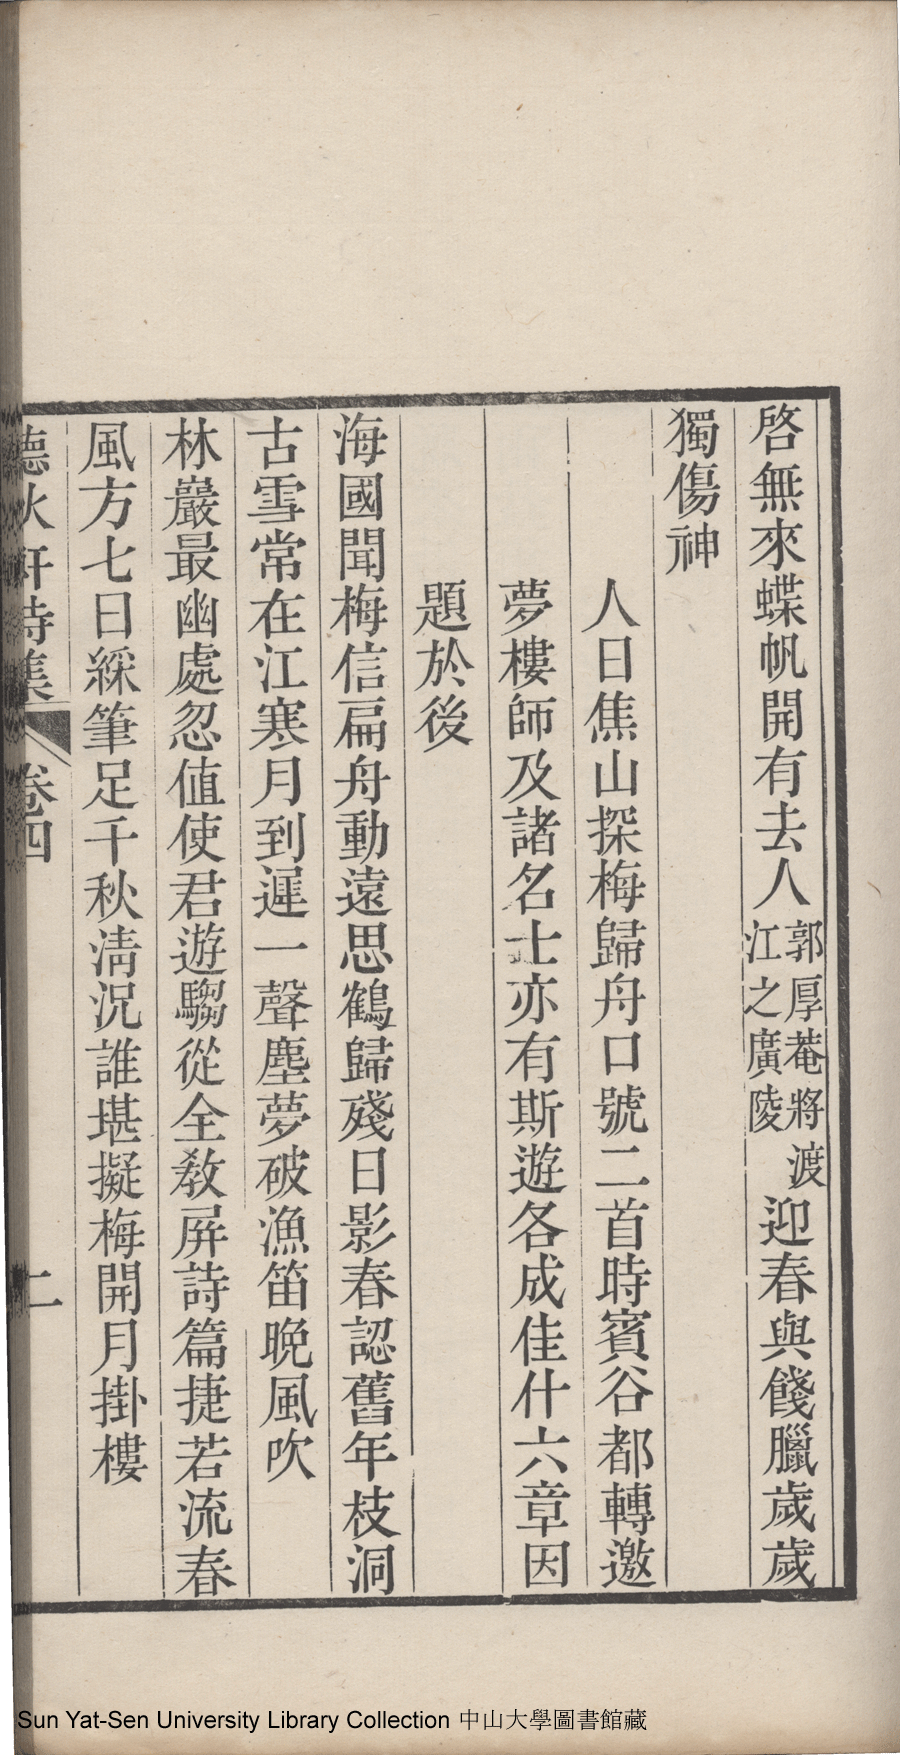 啓無來蝶帆開有去人郭厚菴將渡江之廣陵迎春與餞臘歲歲
獨傷神
人日焦山探梅歸舟口號二首時賓谷都轉邀
夢樓師及諸名士亦有斯遊各成佳什六章因
題於後
海國聞梅信扁舟動遠思鶴歸殘日影春認舊年枝洞
古雪常在江寒月到遲一聲塵夢破漁笛晚風吹
林巖最幽處忽值使君遊騶從全教屏詩篇捷若流春
風方七日綵筆足千秋清況誰堪擬梅開月掛樓
聽秋軒詩集 卷四 二
Sun Yat-Sen University Library Collection 中山大學圖書館藏